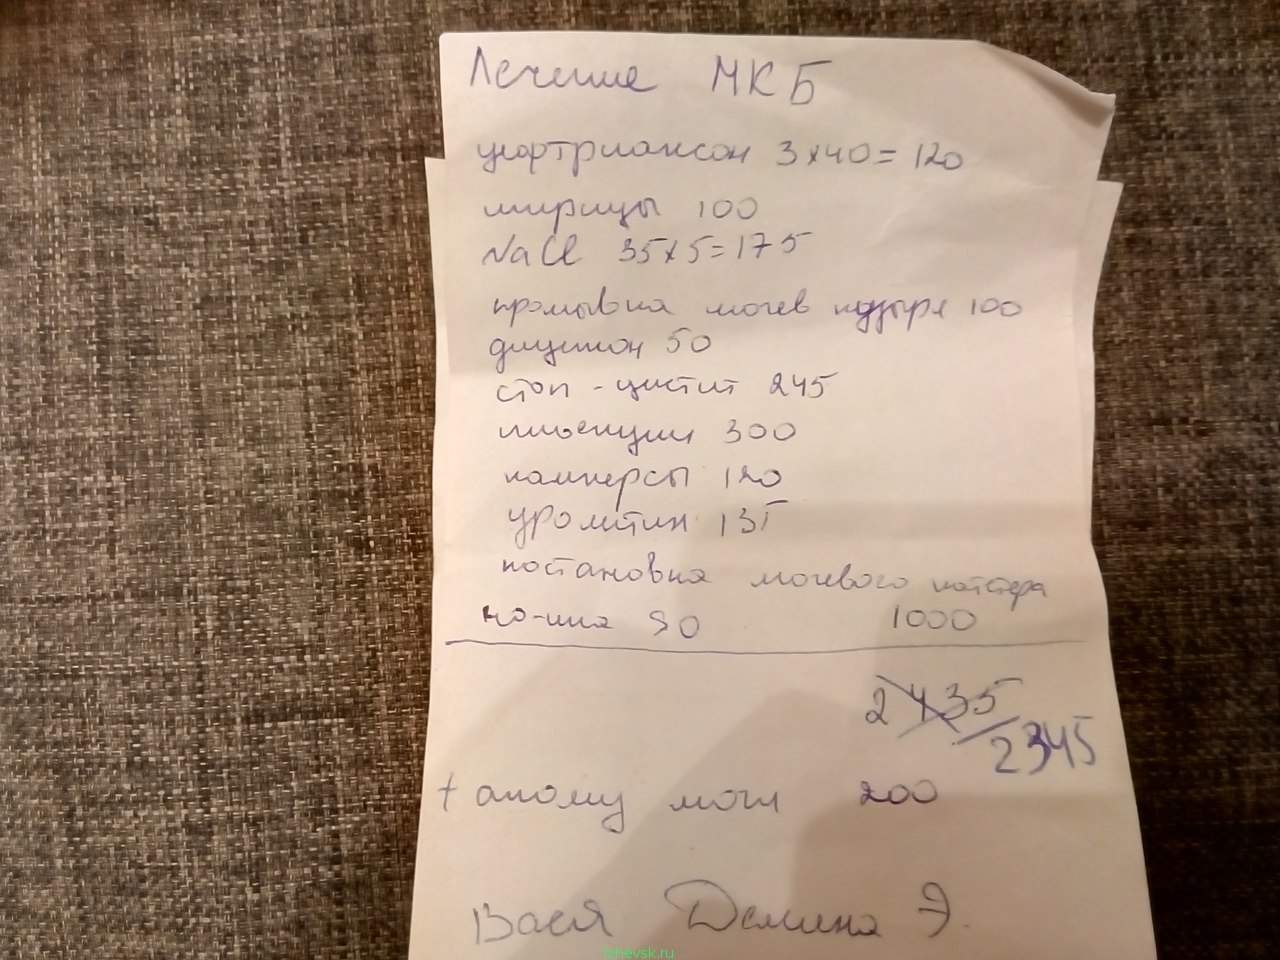 Лечение МКБ
цефтриаксон 3х40=120
шприцы 100
NaCl 35х5=175
промывка мочев пузыря 100
дицинон 50
стоп-цистит 245
инъекции 300
памперсы 120
135
постановка мочевого катетера
но-шпа 90 1000
2435
2345
+ анализ мочи 200
Вася Демина Э.
izhevsk.ru